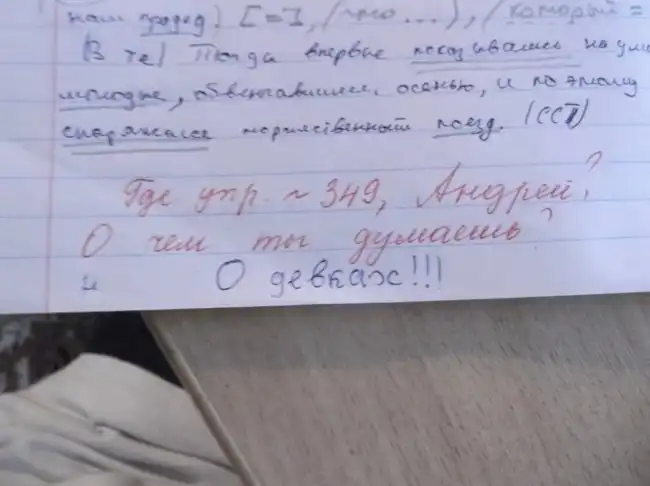 нам продед.) [–=], (что...), (который =
(В те) Тогда впервые показывались на ули
молодые, обвенчавшиеся осенью, и поэтому
снаряжался торжественный поезд. (ССП)
Где упр. ~ 349, Андрей?
О чем ты думаешь?
О девках!!!